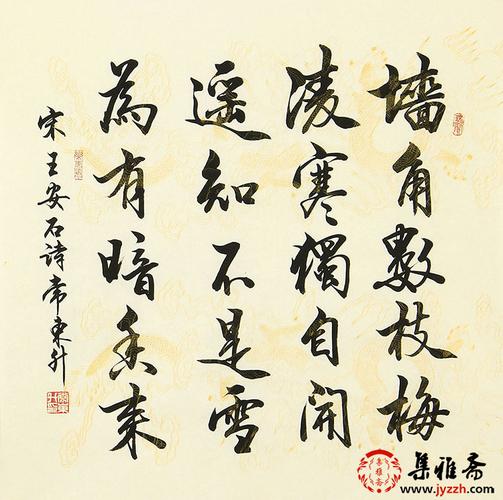 墙角數枝梅
凌寒獨自開
遥知不是雪
為有暗香来
宋王安石诗常東升
集雅斋
集雅斋
www.jyzzh.com